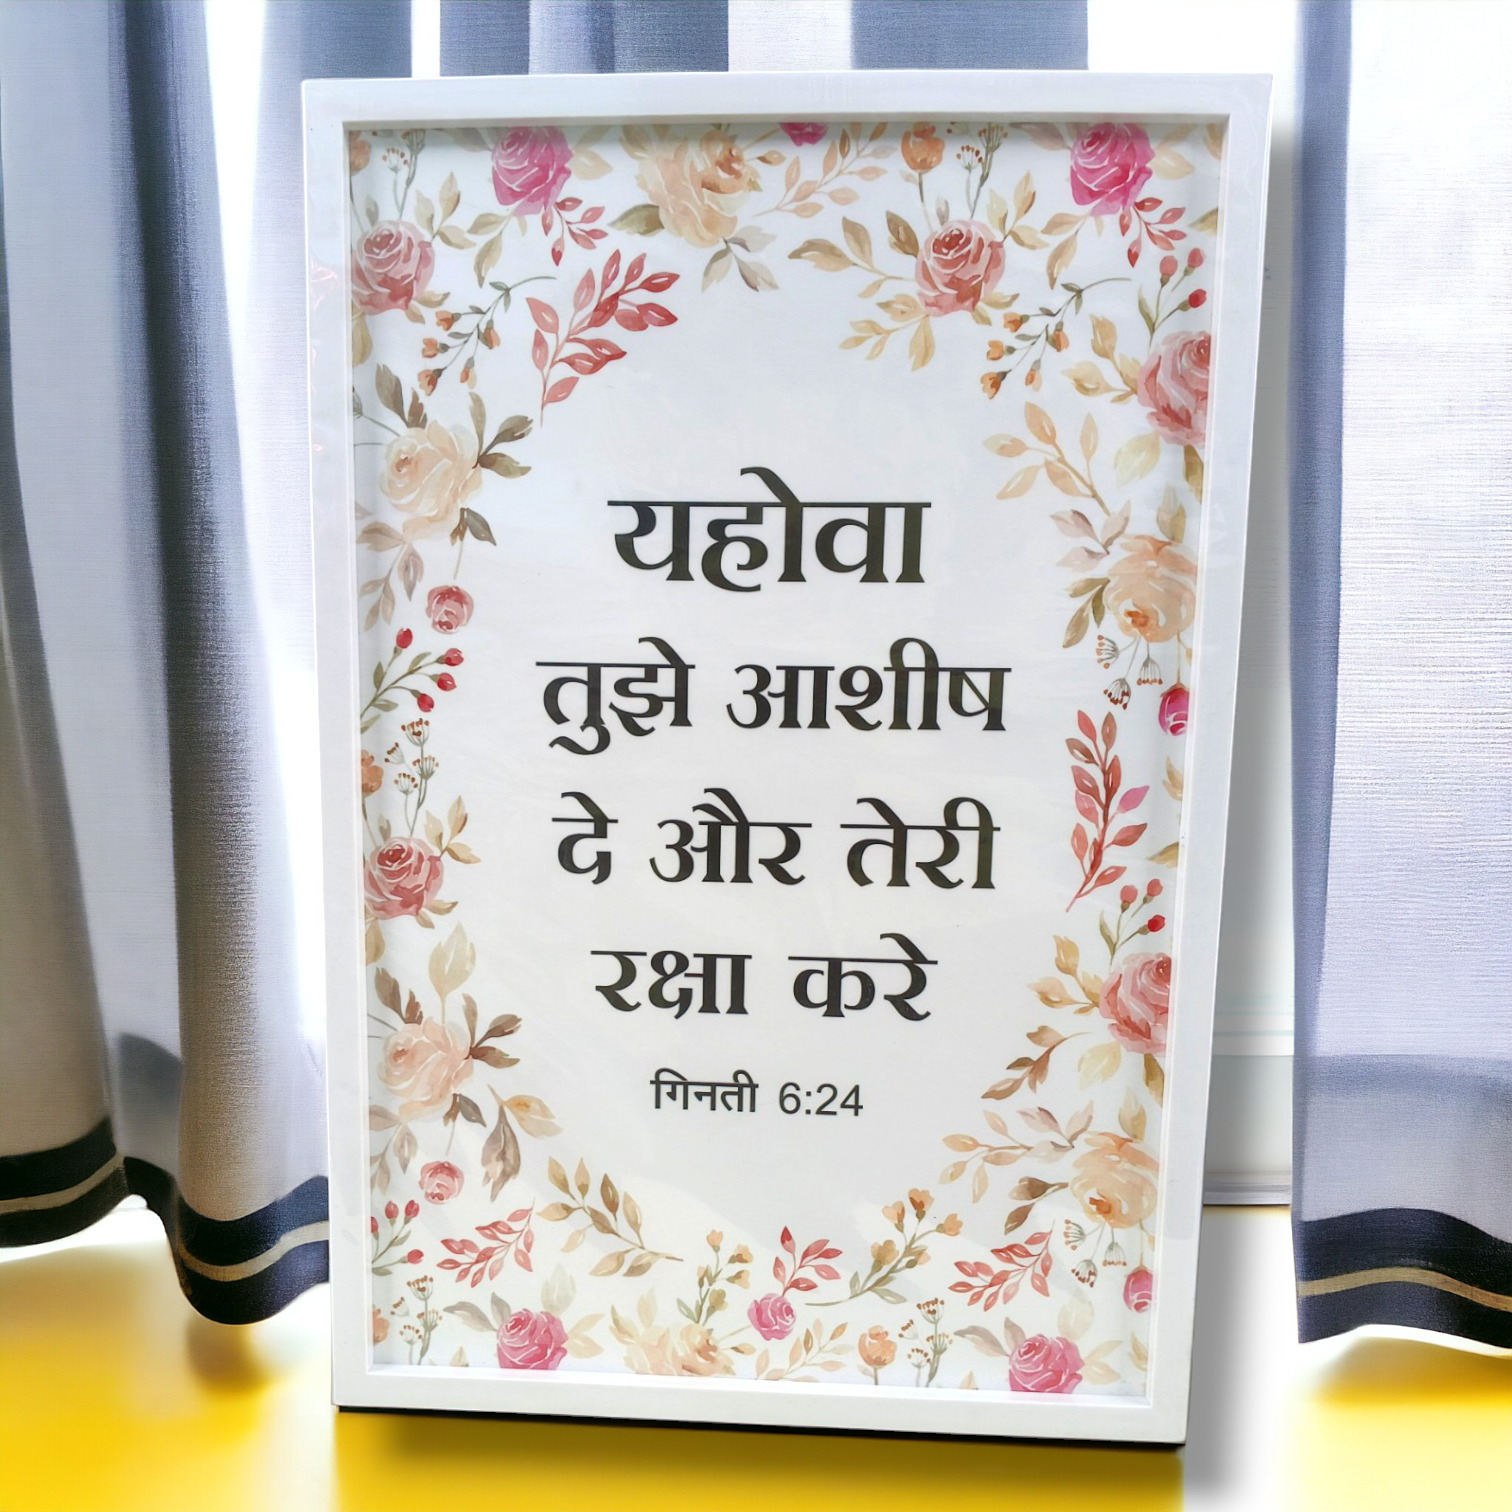 यहोवा
तुझे आशीष
दे और तेरी
रक्षा करे
गिनती 6:24